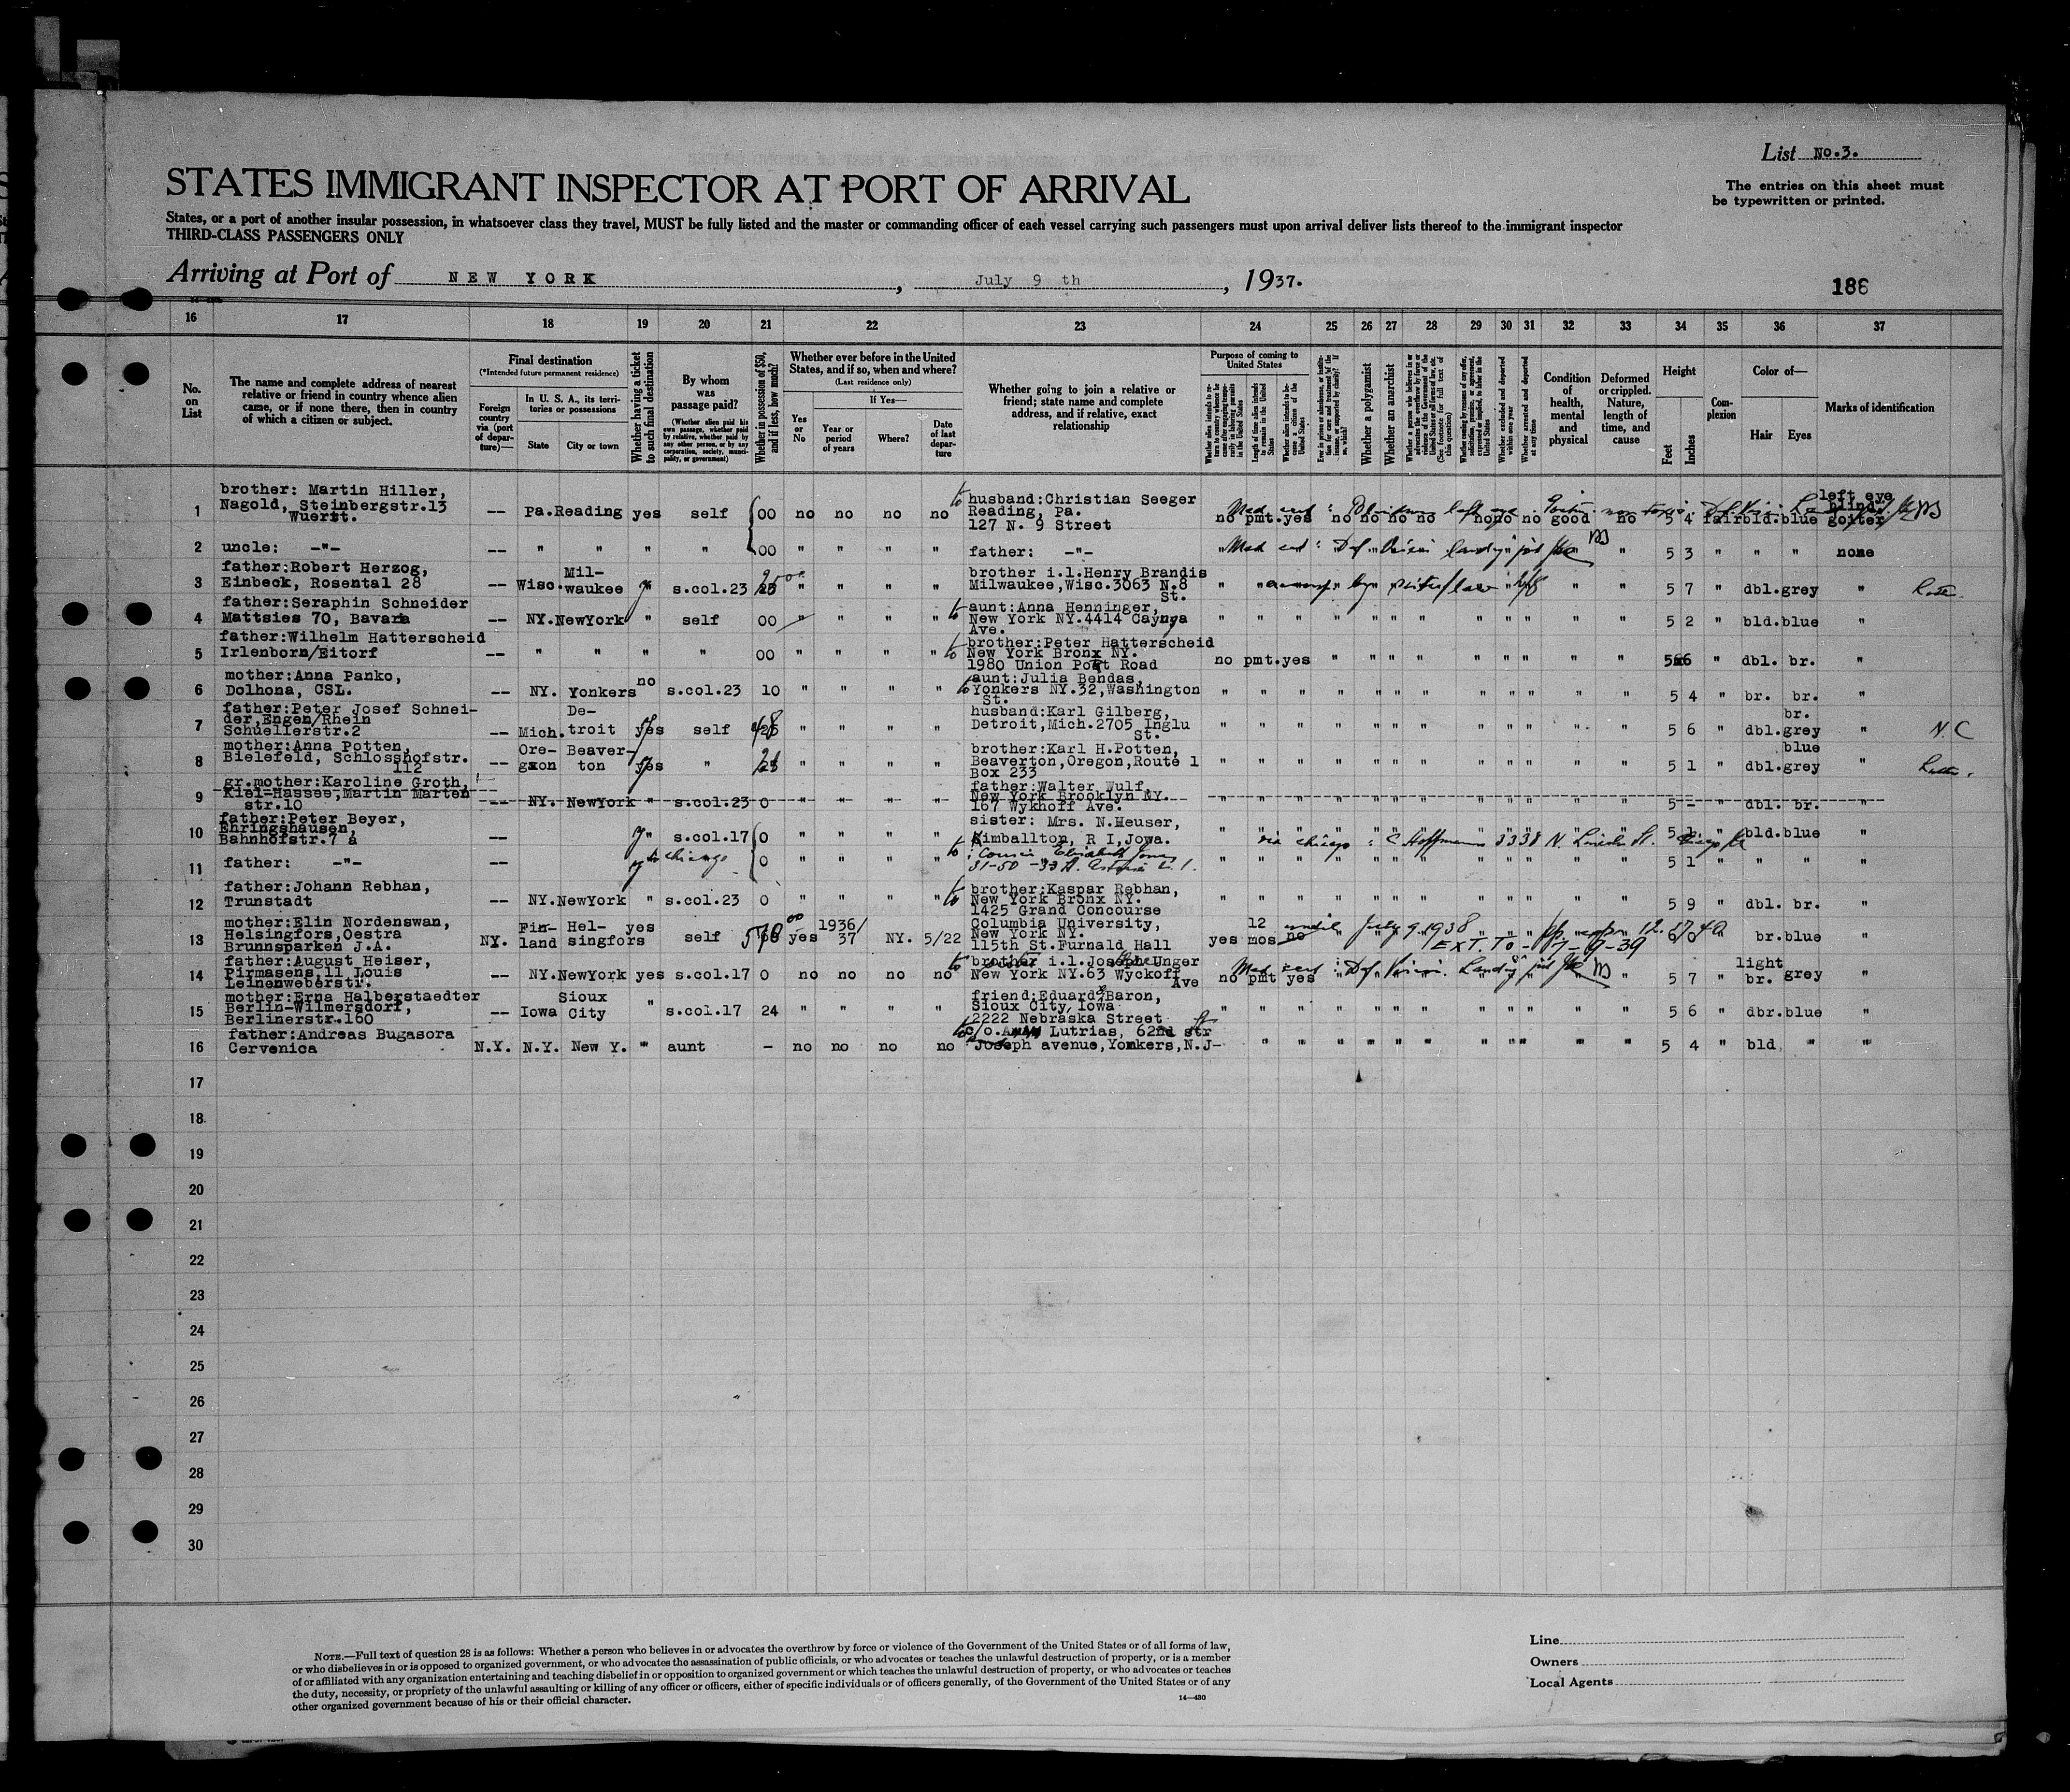 List No.3.
STATES IMMIGRANT INSPECTOR AT PORT OF ARRIVAL
The entries on this sheet must
be typewritten or printed.
States, or a port of another insular possession, in whatsoever class they travel, MUST be fully listed and the master or commanding officer of each vessel carrying such passengers must upon arrival deliver lists thereof to the immigrant inspector
THIRD-CLASS PASSENGERS ONLY
Arriving at Port of NEW YORK, July 9 th, 1937.
186
16 17 18 19 20 21 22 23 24 25 26 27 28 29 30 31 32 33 34 35 36 37
No. on List
The name and complete address of nearest relative or friend in country whence alien came, or if none there, then in country of which a citizen or subject.
Final destination
(*Intended future permanent residence)
Foreign country via (port of departure)—
In U. S. A., its territories or possessions
State City or town
Whether having a ticket to such final destination
By whom was passage paid?
(Whether alien paid his own passage, whether paid by relative, whether paid by any other person, or by any corporation, society, municipality, or government)
Whether in possession of $50, and if less, how much?
Whether ever before in the United States, and if so, when and where?
(Last residence only)
Yes or No
If Yes—
Year or period of years
Where?
Date of last departure
Whether going to join a relative or friend; state name and complete address, and if relative, exact relationship
Purpose of coming to United States
Whether a polygamist
Whether an anarchist
Whether excluded and deported within one year
Whether arrested and deported at any time
Condition of health, mental and physical
Deformed or crippled. Nature, length of time, and cause
Height
Feet Inches
Complexion
Color of—
Hair Eyes
Marks of identification
1 brother: Martin Hiller, Nagold, Steinbergstr.13 Wuertt. -- Pa. Reading yes self 00 no no no no husband:Christian Seeger Reading, Pa. 127 N. 9 Street no pmt. yes no no no no no no no good no 5 4 fair bld. blue left eye blind goiter
2 uncle: -"- -- " " " " 00 " " " " father: -"- " " 5 3 " " " none
3 father:Robert Herzog, Einbeck, Rosental 28 -- Wisc. Mil-waukee " s.col.23 " " " " brother i.l.Henry Brandis Milwaukee,Wisc.3063 N.8 St. " 5 7 " dbl. grey "
4 father:Seraphin Schneider Mattsies 70, Bavara -- NY. NewYork " self 00 " " " " aunt:Anna Henninger, New York NY.4414 Cayuga Ave. " " " " " " " " " " " " 5 2 " bld. blue "
5 father:Wilhelm Hatterscheid Irlenborn/Eitorf -- " " " " 00 " " " " brother:Peter Hatterscheid New York Bronx NY. 1980 Union Port Road no pmt. yes " " " " " " " " " 5 6 " dbl. br. "
6 mother:Anna Panko, Dolhona, CSL. -- NY. Yonkers no s.col.23 10 " " " " aunt:Julia Bendas, Yonkers NY.32,Washington St. " " " " " " " " " " " " 5 4 " br. br. "
7 father:Peter Josef Schnei-der,Engen/Rhein Schuellerstr.2 -- Mich. De-troit yes self " " " " husband:Karl Gilberg, Detroit,Mich.2705 Inglu St. " " " " " " " " " " " " 5 6 " dbl. br. grey " N.C
8 mother:Anna Potten, Bielefeld, Schlosshofstr. 112 -- Ore-gon Beaver-ton yes " " " " " brother:Karl H.Potten, Beaverton,Oregon,Route 1 Box 233 " " " " " " " " " " " " 5 1 " dbl. blue grey "
9 gr.mother:Karoline Groth, Kiel-Hassee,Martin Marten str.10 -- NY. NewYork " s.col.23 0 " " " " father:Walter Wulf, New York Brooklyn NY. 167 Wykhoff Ave. " " " " " " " " " " " " 5 - " dbl. br. "
10 father:Peter Beyer, Ehringshausen, Bahnhofstr.7 a -- " s.col.17 0 " " " " sister: Mrs. N.Heuser, Kimballton, R 1,Jowa. via Chicago : C Hoffmann 3338 N. Lincoln St. Chicago " bld. blue "
11 father: -"- -- to Chicago 0 " " " " Cousin Elizabeth 31-50 - 33 St. Astoria L.I. " " " " " " " " " " " " 5 1 " " " "
12 father:Johann Rebhan, Trunstadt -- NY. NewYork " s.col.23 0 " " " " brother:Kaspar Rebhan, New York Bronx NY. 1425 Grand Concourse " " " " " " " " " " " " 5 9 " dbl. br. "
13 mother:Elin Nordenswan, Helsingfors,Oestra Brunnsparken J.A. NY. Fin-land Hel-singfors yes self yes 1936/37 NY. 5/22 Columbia University, New York NY. 115th St.Furnald Hall yes 12 mos no until July 9.1938 EXT. TO - 7-9-39 6 0 " br. blue "
14 father:August Heiser, Pirmasens,11 Louis Leinenweberstr. -- NY. NewYork yes s.col.17 0 no no no no brother i.l. Unger New York NY.63 Wyckoff Ave no pmt yes " 5 7 " light br. grey "
15 mother:Erna Halberstaedter Berlin-Wilmersdorf, Berlinerstr.160 -- Iowa Sioux City " s.col.17 24 " " " " friend:Eduard Baron, Sioux City,Iowa 2222 Nebraska Street " " " " " " " " " " " " 5 6 " dbr. blue "
16 father:Andreas Bugasora Cervenica N.Y. N.Y. New Y. " aunt - no no no no c/o. Lutrias, 62nd str Joseph avenue,Yonkers,N.J- " " " " " " " " " " " " 5 4 " bld " "
17
18
19
20
21
22
23
24
25
26
27
28
29
30
NOTE.—Full text of question 28 is as follows: Whether a person who believes in or advocates the overthrow by force or violence of the Government of the United States or of all forms of law,
or who disbelieves in or is opposed to organized government, or who advocates the assassination of public officials, or who advocates or teaches the unlawful destruction of property, or is a member
of or affiliated with any organization entertaining and teaching disbelief in or opposition to organized government or which teaches the unlawful destruction of property, or who advocates or teaches
the duty, necessity, or propriety of the unlawful assaulting or killing of any officer or officers, either of specific individuals or of officers generally, of the Government of the United States or of any
other organized government because of his or their official character.
14—430
Line
Owners
Local Agents